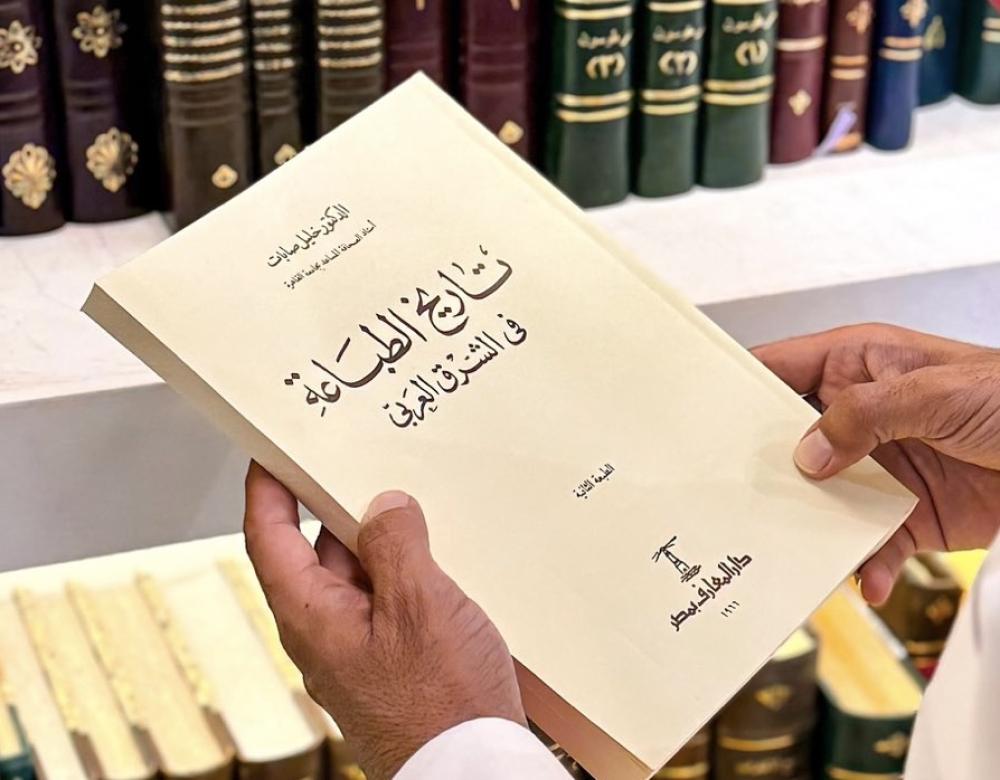 الدكتور خليل صابات
أستاذ الصحافة المساعد بجامعة القاهرة
تاريخ الطباعة
فى الشرق العربى
الطبعة الثانية
دار المعارف بمصر
١٩٦٦
(٣)
(٢)
(١)